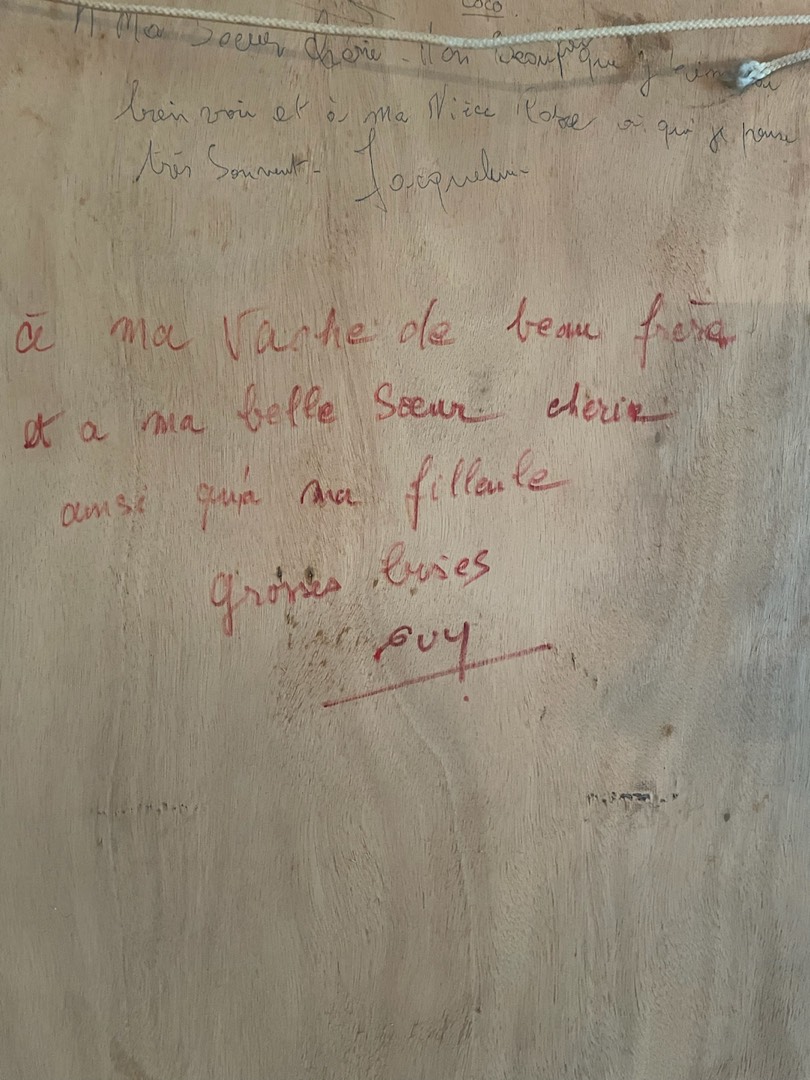 Coco.
Ma Soeur Chérie. Mon Beaupère que j'aime
bien voir et à ma Nièce à qui je pense
très Souvent - Jacqueline
à ma Vache de beau frère
et a ma belle Sœur chérie
ainsi qu'à ma filleule
Grosses bises
GUY